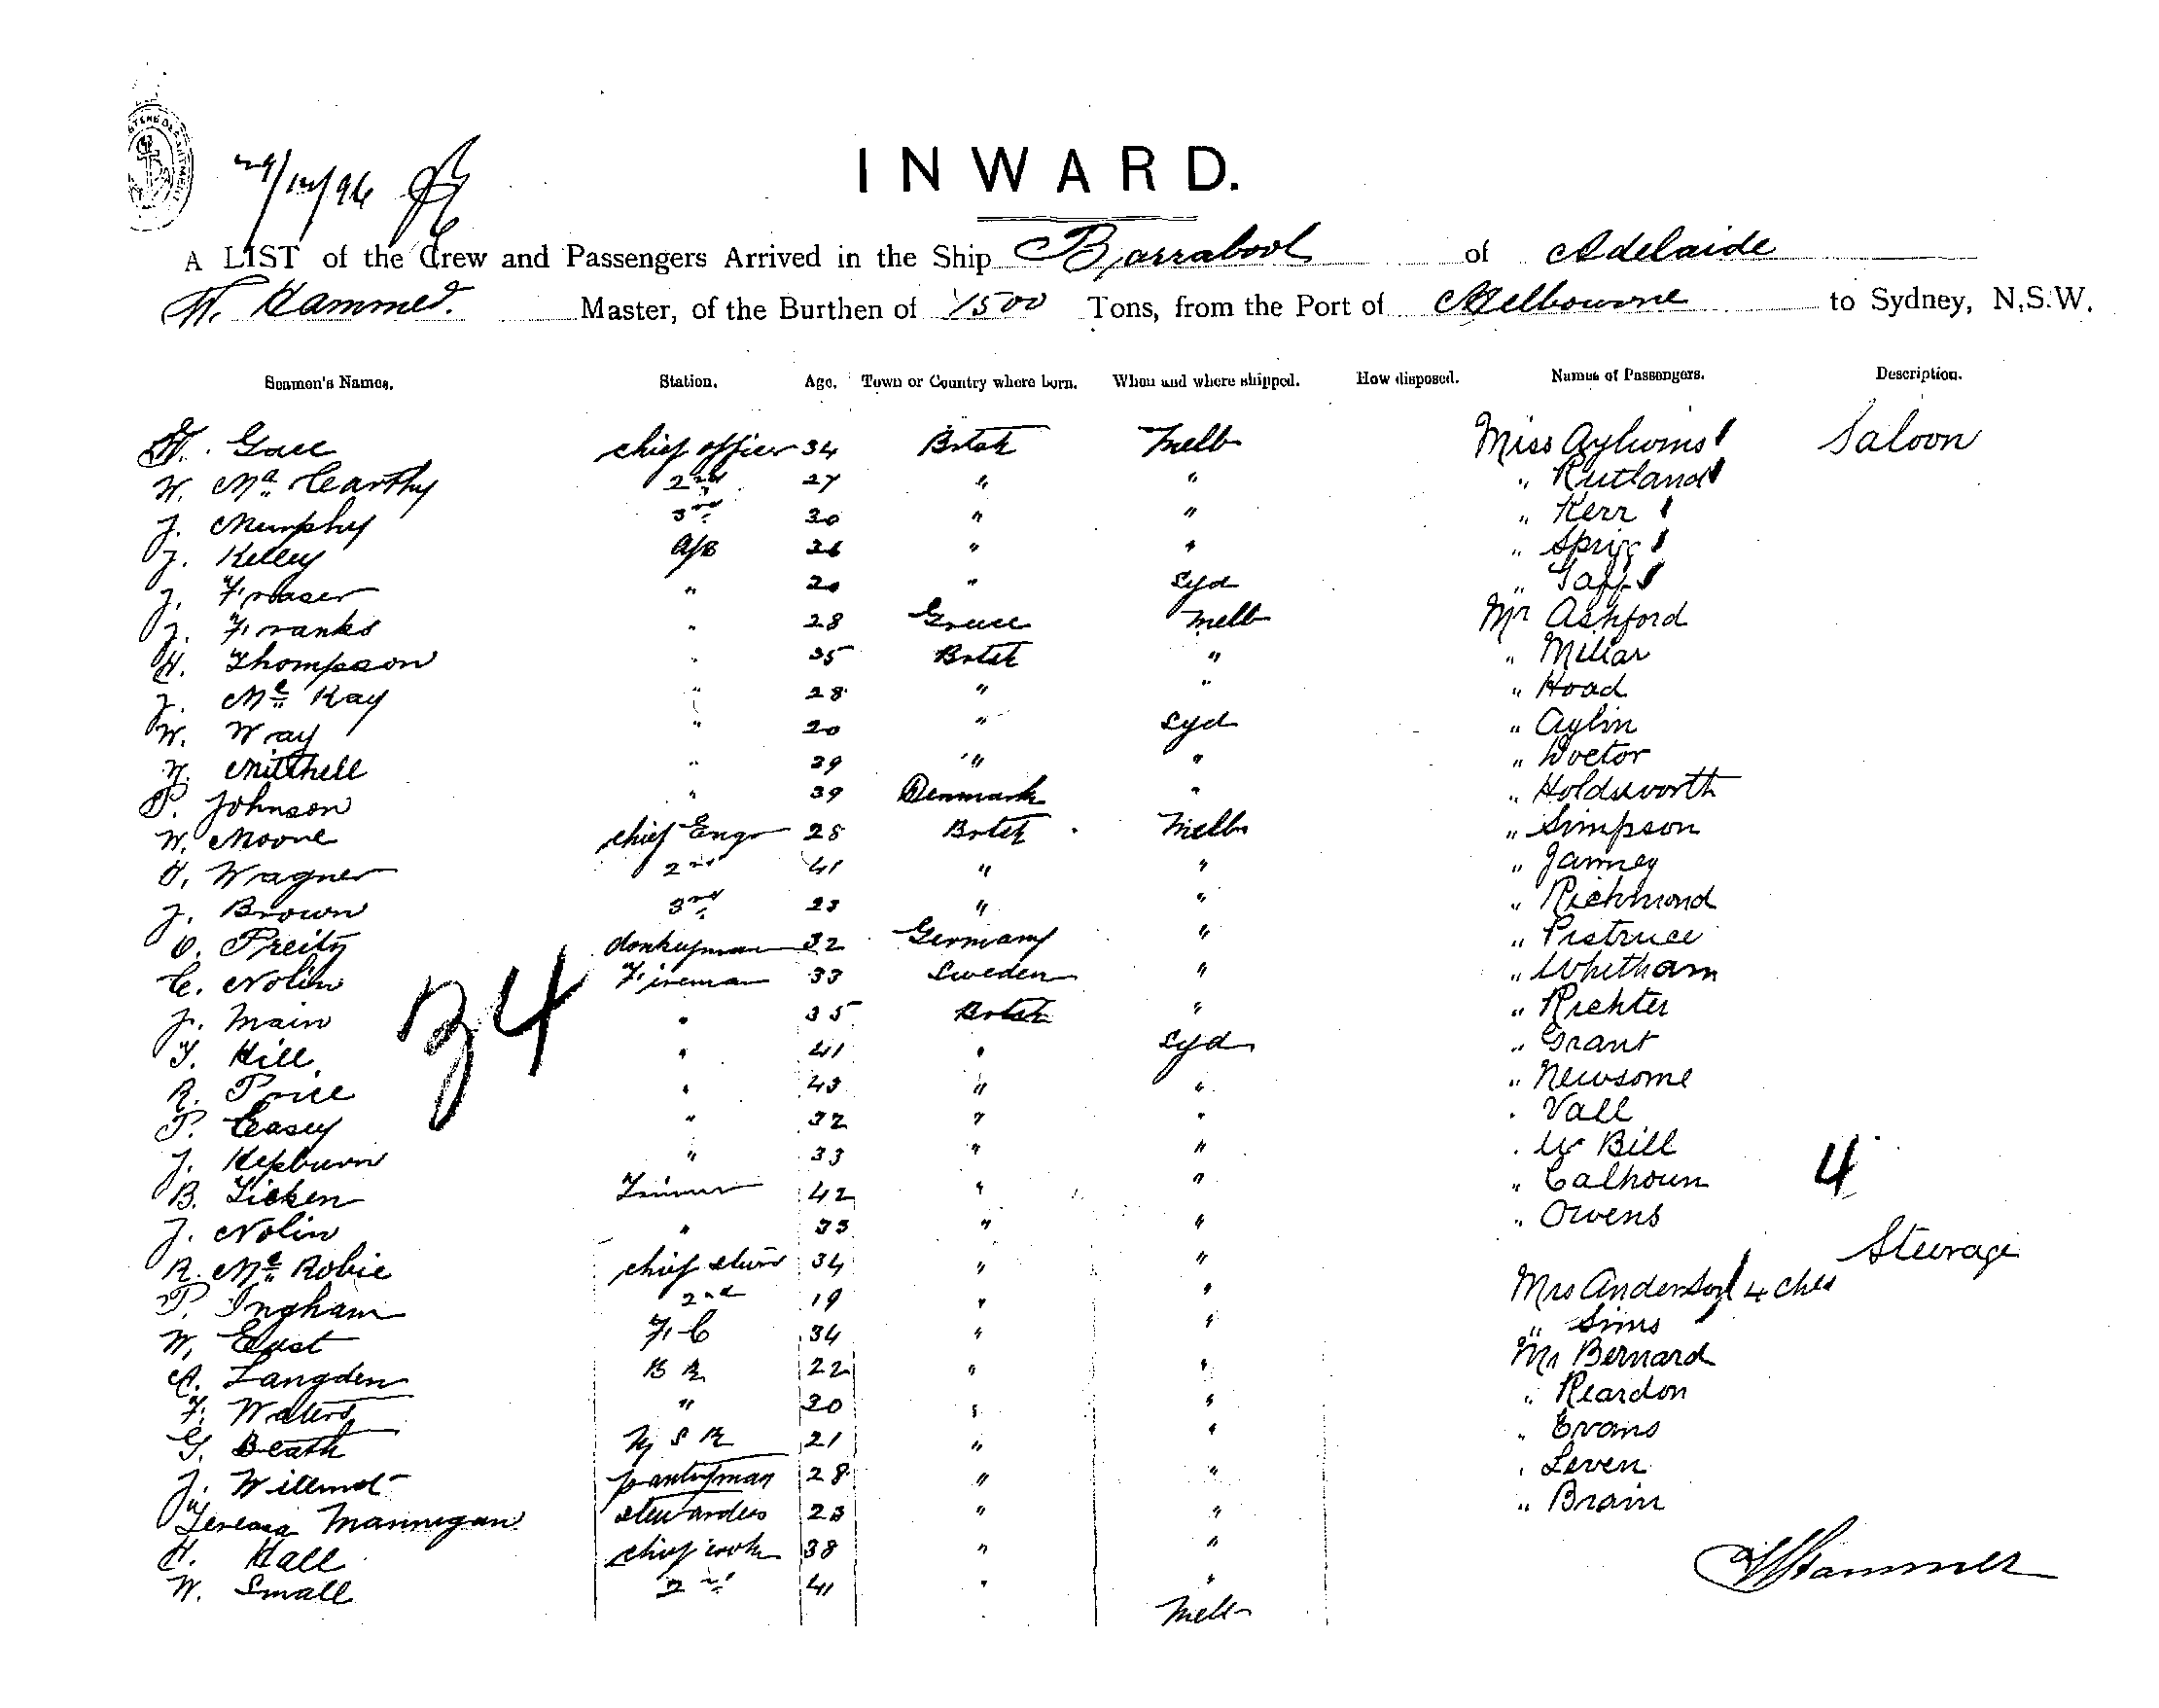 29/12/96
INWARD.
A LIST of the Crew and Passengers Arrived in the Ship Barrabool of Adelaide
Master, of the Burthen of 1500 Tons, from the Port of Melbourne to Sydney, N.S.W.
Seamen's Names. Station. Age. Town or Country where born. When and where shipped. How disposed. Names of Passengers. Description.
chief officer 34 Brtsh Melb Miss Saloon
W. McCarthy 2nd 27 " " " Rutland
J. Murphy 3rd 30 " " " Kerr
J. Kelley A/B 26 " " " Sprigg
J. Fraser " 20 " Syd "
J. Franks " 28 Greece Melb Mr Ashford
H. Thompson " 35 Brtsh " " Millar
J. Mc Kay " 28 " " " Hoad
W. Wray " 20 " Syd " Aylin
Mitthell " 39 " " " Doctor
P. Johnson " 39 Denmark " " Holdsworth
W. Moore chief Engr 28 Brtsh Melb " Simpson
H. Wagner 2nd 41 " " "
J. Brown 3rd 23 " " " Richmond
donkeyman 32 Germany " " Pistrucci
C. Nolin Fireman 33 Sweden " " Whitham
J. Main " 35 Brtsh " " Richter
T. Hill " 41 " Syd " Grant
R. Price " 43 " " " Newsome
P. Casey " 32 " " " Vall
J. Hepburn " 33 " " " Bill
B. Ticken Trimmer 42 " " " Calhoun 4
J. Nolin " 33 " " " Owens
34
R. Mc Robie chief stwd 34 " " Steerage
P. Ingham 2nd 19 " " Mrs Anderson 4 chds
W. East F.C 34 " " " Sims
A. Langden B R 22 " " Mr Bernard
F. Waters " 20 " " " Reardon
G. Death M S R 21 " " " Evans
J. Willmot pantryman 28 " " " Leven
Teresa Mannigan stewardess 23 " " " Brain
H. Hall chief cook 38 " "
W. Small 2nd 41 " "
Melb